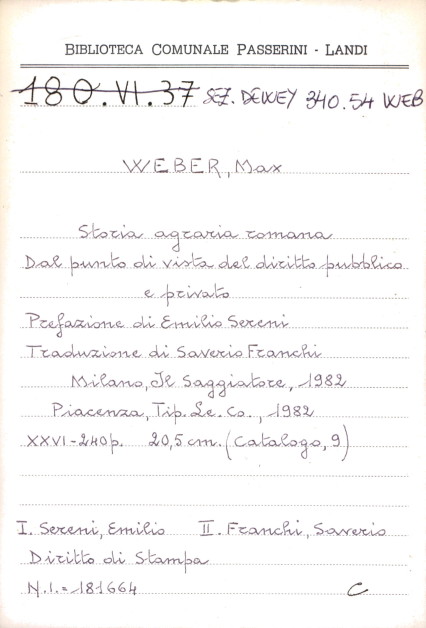 BIBLIOTECA COMUNALE PASSERINI - LANDI
180.VI.37 SEZ. DEWEY 340.54 WEB
WEBER, Max
Storia agraria romana
Dal punto di vista del diritto pubblico
e privato
Prefazione di Emilio Sereni
Traduzione di Saverio Franchi
Milano, Il Saggiatore, 1982
Piacenza, Tip. Le. Co., 1982
XXVI-240p. 20,5 cm. (Catalogo, 9)
I. Sereni, Emilio II. Franchi, Saverio
Diritto di Stampa
N.I. = 181664 C